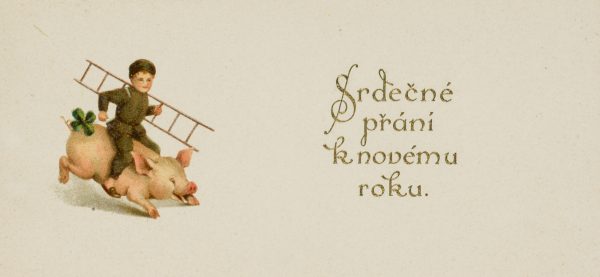 Srdečné
přání
k novému
roku.